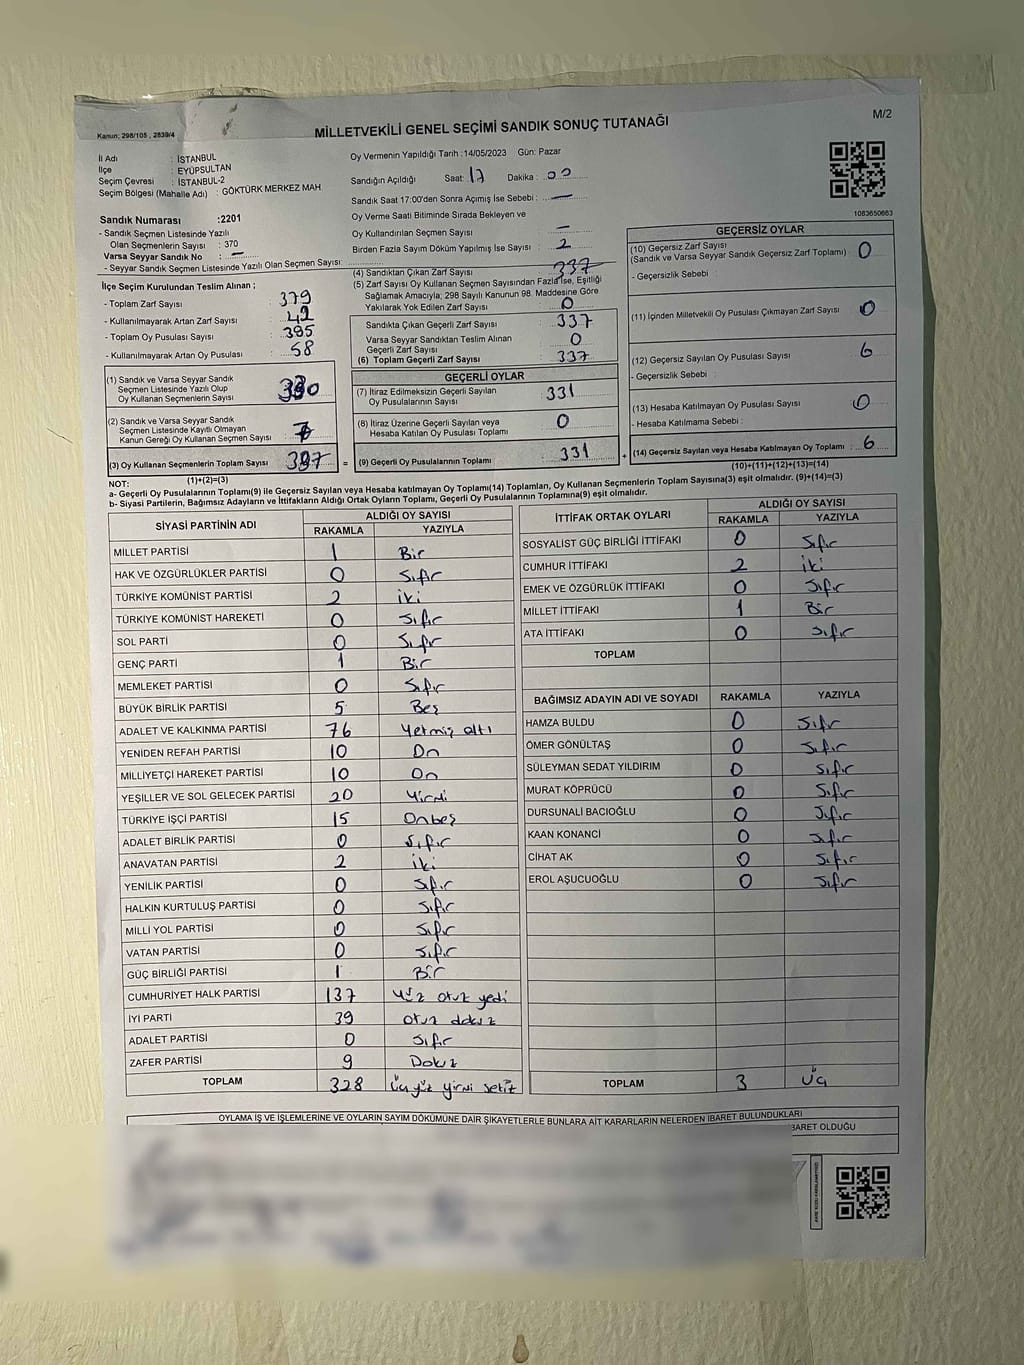 M/2
Kanun; 298/105 , 2839/4
MİLLETVEKİLİ GENEL SEÇİMİ SANDIK SONUÇ TUTANAĞI
İl Adı : İSTANBUL
İlçe : EYÜPSULTAN
Seçim Çevresi : İSTANBUL-2
Seçim Bölgesi (Mahalle Adı) : GÖKTÜRK MERKEZ MAH.
Sandık Numarası :2201
- Sandık Seçmen Listesinde Yazılı
Olan Seçmenlerin Sayısı : 370
Varsa Seyyar Sandık No : —
- Seyyar Sandık Seçmen Listesinde Yazılı Olan Seçmen Sayısı
Oy Vermenin Yapıldığı Tarih :14/05/2023 Gün: Pazar
Sandığın Açıldığı Saat: 17 Dakika : 00
Sandık Saat 17:00'den Sonra Açımış İse Sebebi : —
Oy Verme Saati Bitiminde Sırada Bekleyen ve
Oy Kullandırılan Seçmen Sayısı —
Birden Fazla Sayım Döküm Yapılmış İse Sayısı : 2
1083650663
İlçe Seçim Kurulundan Teslim Alınan ;
- Toplam Zarf Sayısı : 379
- Kullanılmayarak Artan Zarf Sayısı : 42
- Toplam Oy Pusulası Sayısı : 395
- Kullanılmayarak Artan Oy Pusulası : 58
(1) Sandık ve Varsa Seyyar Sandık
Seçmen Listesinde Yazılı Olup
Oy Kullanan Seçmenlerin Sayısı
(2) Sandık ve Varsa Seyyar Sandık
Seçmen Listesinde Kayıtlı Olmayan
Kanun Gereği Oy Kullanan Seçmen Sayısı 7
(3) Oy Kullanan Seçmenlerin Toplam Sayısı 337
(1)+(2)=(3)
(4) Sandıktan Çıkan Zarf Sayısı 337
(5) Zarf Sayısı Oy Kullanan Seçmen Sayısından Fazla İse, Eşitliği
Sağlamak Amacıyla; 298 Sayılı Kanunun 98. Maddesine Göre
Yakılarak Yok Edilen Zarf Sayısı: 0
Sandıkta Çıkan Geçerli Zarf Sayısı 337
Varsa Seyyar Sandıktan Teslim Alınan
Geçerli Zarf Sayısı 0
(6) Toplam Geçerli Zarf Sayısı 337
GEÇERLİ OYLAR
(7) İtiraz Edilmeksizin Geçerli Sayılan
Oy Pusulalarının Sayısı 331
(8) İtiraz Üzerine Geçerli Sayılan veya
Hesaba Katılan Oy Pusulası Toplamı 0
= (9) Geçerli Oy Pusulalarının Toplamı 331 +
GEÇERSİZ OYLAR
(10) Geçersiz Zarf Sayısı
(Sandık ve Varsa Seyyar Sandık Geçersiz Zarf Toplamı) 0
- Geçersizlik Sebebi :
(11) İçinden Milletvekili Oy Pusulası Çıkmayan Zarf Sayısı 0
(12) Geçersiz Sayılan Oy Pusulası Sayısı 6
- Geçersizlik Sebebi :
(13) Hesaba Katılmayan Oy Pusulası Sayısı 0
- Hesaba Katılmama Sebebi :
(14) Geçersiz Sayılan veya Hesaba Katılmayan Oy Toplamı 6
(10)+(11)+(12)+(13)=(14)
NOT:
a- Geçerli Oy Pusulalarının Toplamı(9) ile Geçersiz Sayılan veya Hesaba Katılmayan Oy Toplamı(14) Toplamları, Oy Kullanan Seçmenlerin Toplam Sayısına(3) eşit olmalıdır. (9)+(14)=(3)
b- Siyasi Partilerin, Bağımsız Adayların ve İttifakların Aldığı Ortak Oyların Toplamı, Geçerli Oy Pusulalarının Toplamına(9) eşit olmalıdır.
SİYASİ PARTİNİN ADI ALDIĞI OY SAYISI
RAKAMLA YAZIYLA
MİLLET PARTİSİ 1 Bir
HAK VE ÖZGÜRLÜKLER PARTİSİ 0 Sıfır
TÜRKİYE KOMÜNİST PARTİSİ 2 iki
TÜRKİYE KOMÜNİST HAREKETİ 0 Sıfır
SOL PARTİ 0 Sıfır
GENÇ PARTİ 1 Bir
MEMLEKET PARTİSİ 0 Sıfır
BÜYÜK BİRLİK PARTİSİ 5 Beş
ADALET VE KALKINMA PARTİSİ 76 Yetmiş altı
YENİDEN REFAH PARTİSİ 10 On
MİLLİYETÇİ HAREKET PARTİSİ 10 On
YEŞİLLER VE SOL GELECEK PARTİSİ 20 Yirmi
TÜRKİYE İŞÇİ PARTİSİ 15 Onbeş
ADALET BİRLİK PARTİSİ 0 Sıfır
ANAVATAN PARTİSİ 2 iki
YENİLİK PARTİSİ 0 Sıfır
HALKIN KURTULUŞ PARTİSİ 0 Sıfır
MİLLİ YOL PARTİSİ 0 Sıfır
VATAN PARTİSİ 0 Sıfır
GÜÇ BİRLİĞİ PARTİSİ 1 Bir
CUMHURİYET HALK PARTİSİ 137 Yüz otuz yedi
İYİ PARTİ 39 otuz dokuz
ADALET PARTİSİ 0 Sıfır
ZAFER PARTİSİ 9 Dokuz
TOPLAM 328 Üç yüz yirmi sekiz
İTTİFAK ORTAK OYLARI ALDIĞI OY SAYISI
RAKAMLA YAZIYLA
SOSYALİST GÜÇ BİRLİĞİ İTTİFAKI 0 Sıfır
CUMHUR İTTİFAKI 2 iki
EMEK VE ÖZGÜRLÜK İTTİFAKI 0 Sıfır
MİLLET İTTİFAKI 1 Bir
ATA İTTİFAKI 0 Sıfır
TOPLAM
BAĞIMSIZ ADAYIN ADI VE SOYADI RAKAMLA YAZIYLA
HAMZA BULDU 0 Sıfır
ÖMER GÖNÜLTAŞ 0 Sıfır
SÜLEYMAN SEDAT YILDIRIM 0 Sıfır
MURAT KÖPRÜCÜ 0 Sıfır
DURSUNALİ BACIOĞLU 0 Sıfır
KAAN KONANCİ 0 Sıfır
CİHAT AK 0 Sıfır
EROL AŞUCUOĞLU 0 Sıfır
TOPLAM 3 Üç
OYLAMA İŞ VE İŞLEMLERİNE VE OYLARIN SAYIM DÖKÜMÜNE DAİR ŞİKAYETLERLE BUNLARA AİT KARARLARIN NELERDEN İBARET BULUNDUKLARI
BARET OLDUĞU